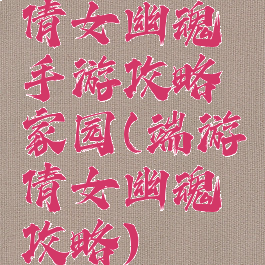 倩女幽魂
手游攻略
家园(端游
倩女幽魂
攻略)